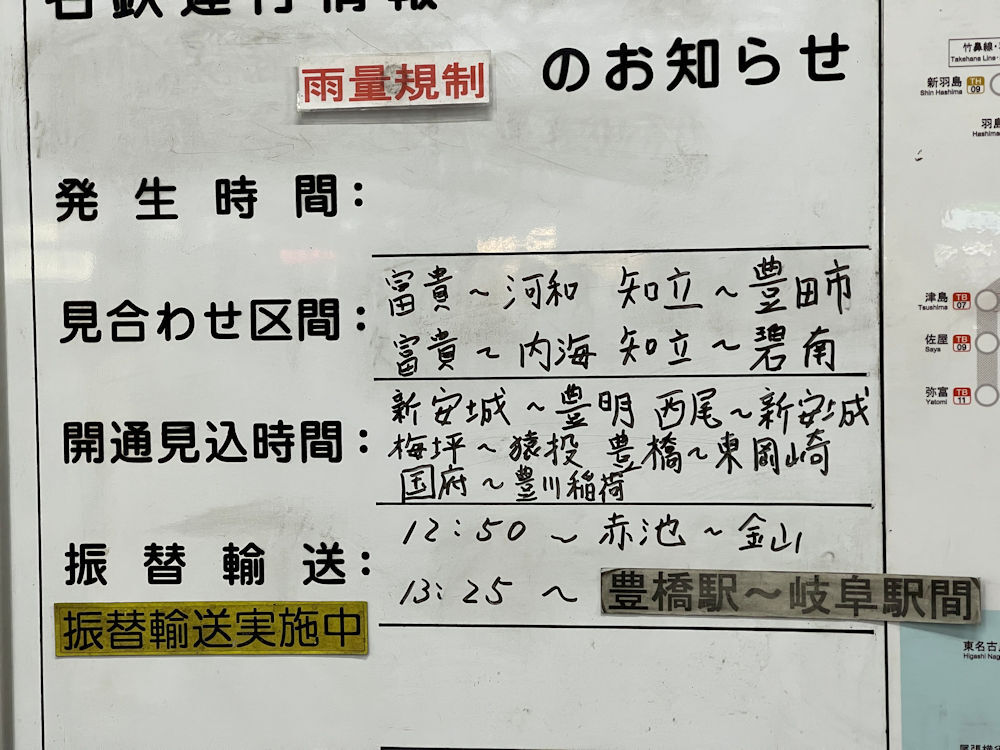 名鉄運行情報
雨量規制 のお知らせ
発生時間：
見合わせ区間： 富貴～河和 知立～豊田市
富貴～内海 知立～碧南
開通見込時間： 新安城～豊明 西尾～新安城
梅坪～猿投 豊橋～東岡崎
国府～豊川稲荷
振替輸送： 12:50～赤池～金山
13:25～ 豊橋駅～岐阜駅間
振替輸送実施中
竹鼻線・
Takehana Line・
新羽島 TH 09
Shin Hashima
羽島
Hashima
津島 TB 07
Tsushima
佐屋 TB 09
Saya
弥富 TB 11
Yatomi
東名古
Higashi Nag